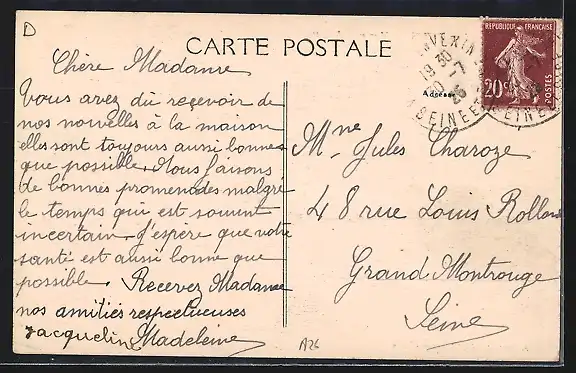 D
CARTE POSTALE
Chère Madame
Vous avez dû reçevoir de
nos nouvelles à la maison
elles sont toujours aussi bonnes
que possible. Nous faisons
de bonnes promenades malgré
le temps qui est souvent
incertain. J'espère que votre
santé est aussi bonne que
possible. Recevez Madame
nos amitiés respectueuses
Jacqueline Madeleine
REPUBLIQUE FRANCAISE
20c
POSTES
VEXIN
19 30
-7
26
SEINE
Adresse
Mme Jules Charoze
48 rue Louis Rolland
Grand Montrouge
Seine
A26